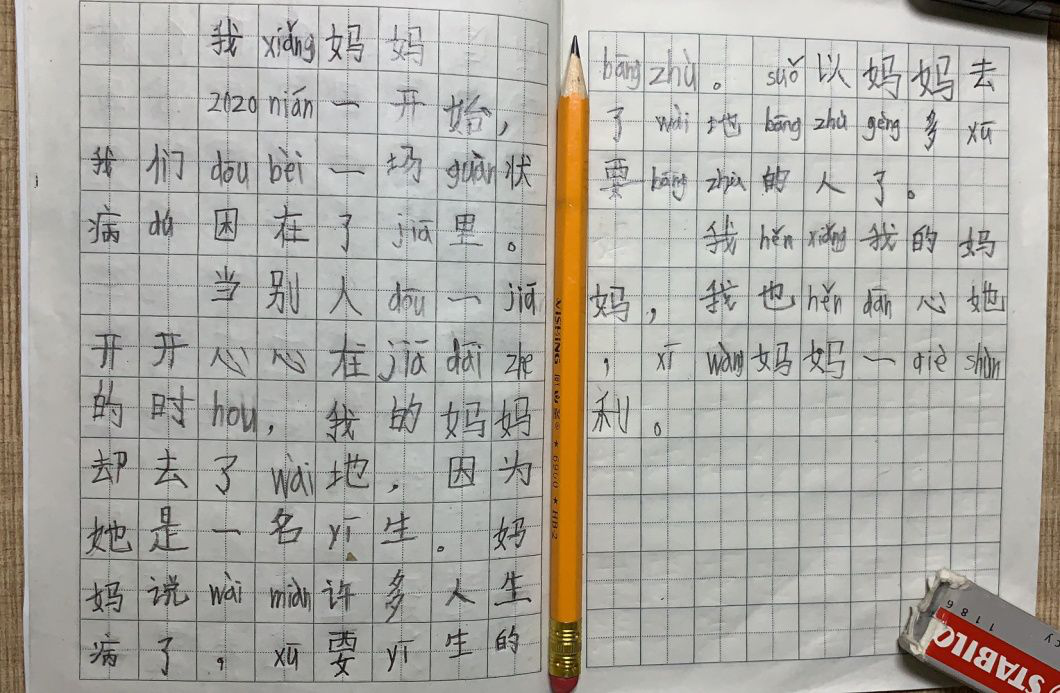 我xiǎng妈妈
2020nián一开始，
我们dōu bèi一场guān状
病dú困在了jiā里。
当别人dōu一jiā
开开心心在jiā dāi zhe
的时hou，我的妈妈
却去了wài地，因为
她是一名yī生。妈
妈说wài miàn许多人生
病了，xū要yī生的
bāng zhù。suǒ以妈妈去
了wài地bāng zhù gèng多xū
要bāng zhù的人了。
我hěn xiǎng我的妈
妈，我也hěn dān心她
，xī wàng妈妈一qiè shùn
利。
MARK'S
6900 ★ HB-2
STABILO
1186